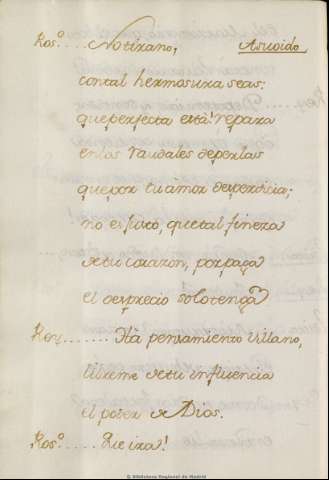 Ros.ª.... No tirano, Asuoido
contal hermosura seas:
que perfecta está! repara
en los raudales de perlas
que por tu amor desperdicia;
no es justo, que tal fineza
de tu corazon, por paga
el desprecio solo tenga
Rey........ Ha pensamiento villano,
libreme de tu influencia
el poder de Dios.
Ros.ª..... Que ira!
© Biblioteca Regional de Madrid